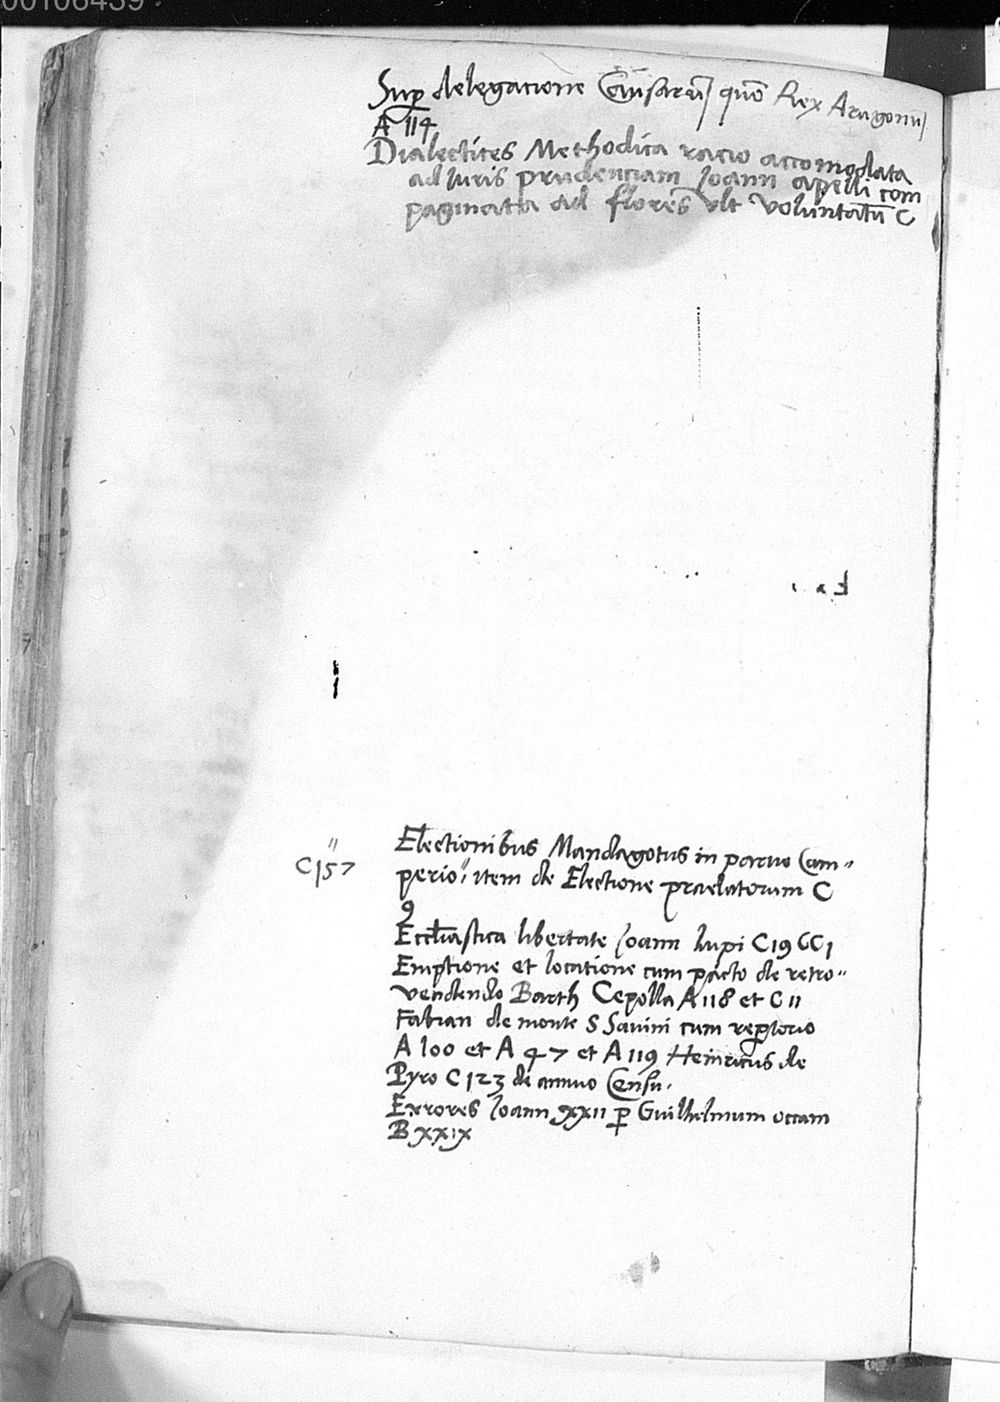 00106439
Sup delegacione Causarũ quõ Rex Aragonũ
A 114
Dialectices Methodica racio accomodata
ad Iuris prudenciam Ioann apelli com
paginata ad flores ult voluntatũ C
Electionibus Mandagotus in paruo Cam„
C 157
perio, item de Electione praelatorum C
9
Ecclesiastica libertate Ioann lupi C 19
Emptione et locatione cum pacto de retro„
vendendo Barth Cepolla A 118 et C 11
Fabian de monte S Sauini cum reptorio
A 100 et A 47 et A 119 Heinricus de
Pyro C 123 de annuo Censu.
Errores Ioann xxii p Guilhelmum occam
B xxix